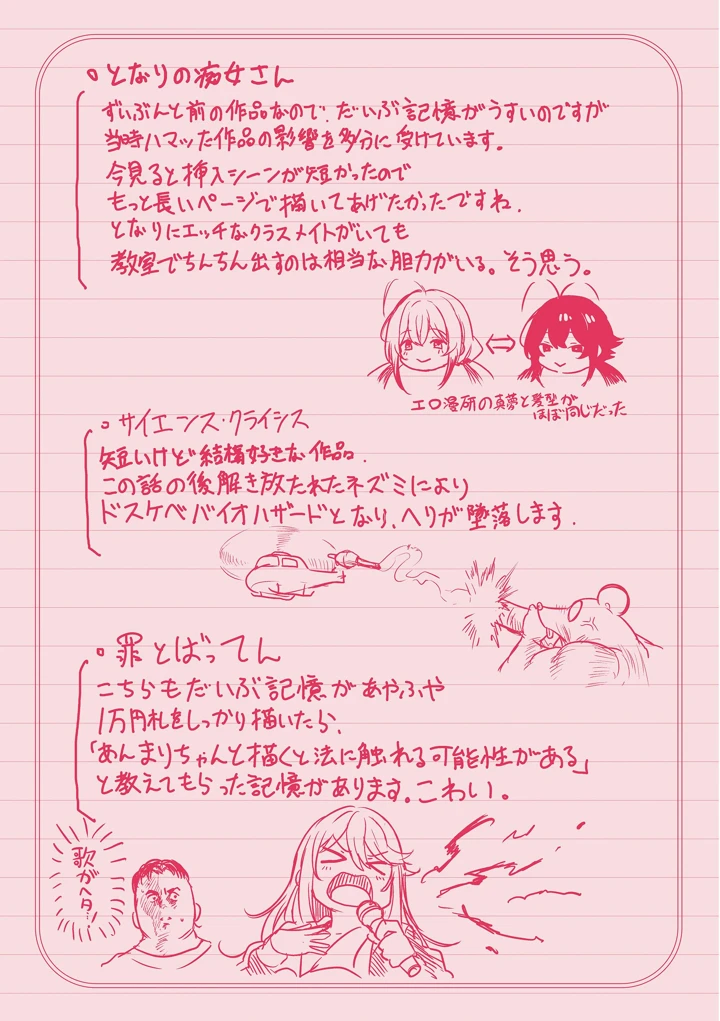 ○となりの痴女さん
ずいぶんと前の作品なので、だいぶ記憶がうすいのですが
当時ハマッた作品の影響を多分に受けています。
今見ると挿入シーンが短かったので
もっと長いページで描いてあげたかったですね.
となりにエッチなクラスメイトがいても
教室でちんちん出すのは相当な胆力がいる。そう思う。
エロ漫研の真夢と髪型が
ほぼ同じだった
○サイエンス・クライシス
短いけど結構好きな作品.
この話の後解き放たれたネズミにより
ドスケベバイオハザードとなり、ヘリが墜落します.
○罪とばってん
こちらもだいぶ記憶があやふや
1万円札をしっかり描いたら、
「あんまりちゃんと描くと法に触れる可能性がある」
と教えてもらった記憶があります。こわい。
歌がヘタ…!